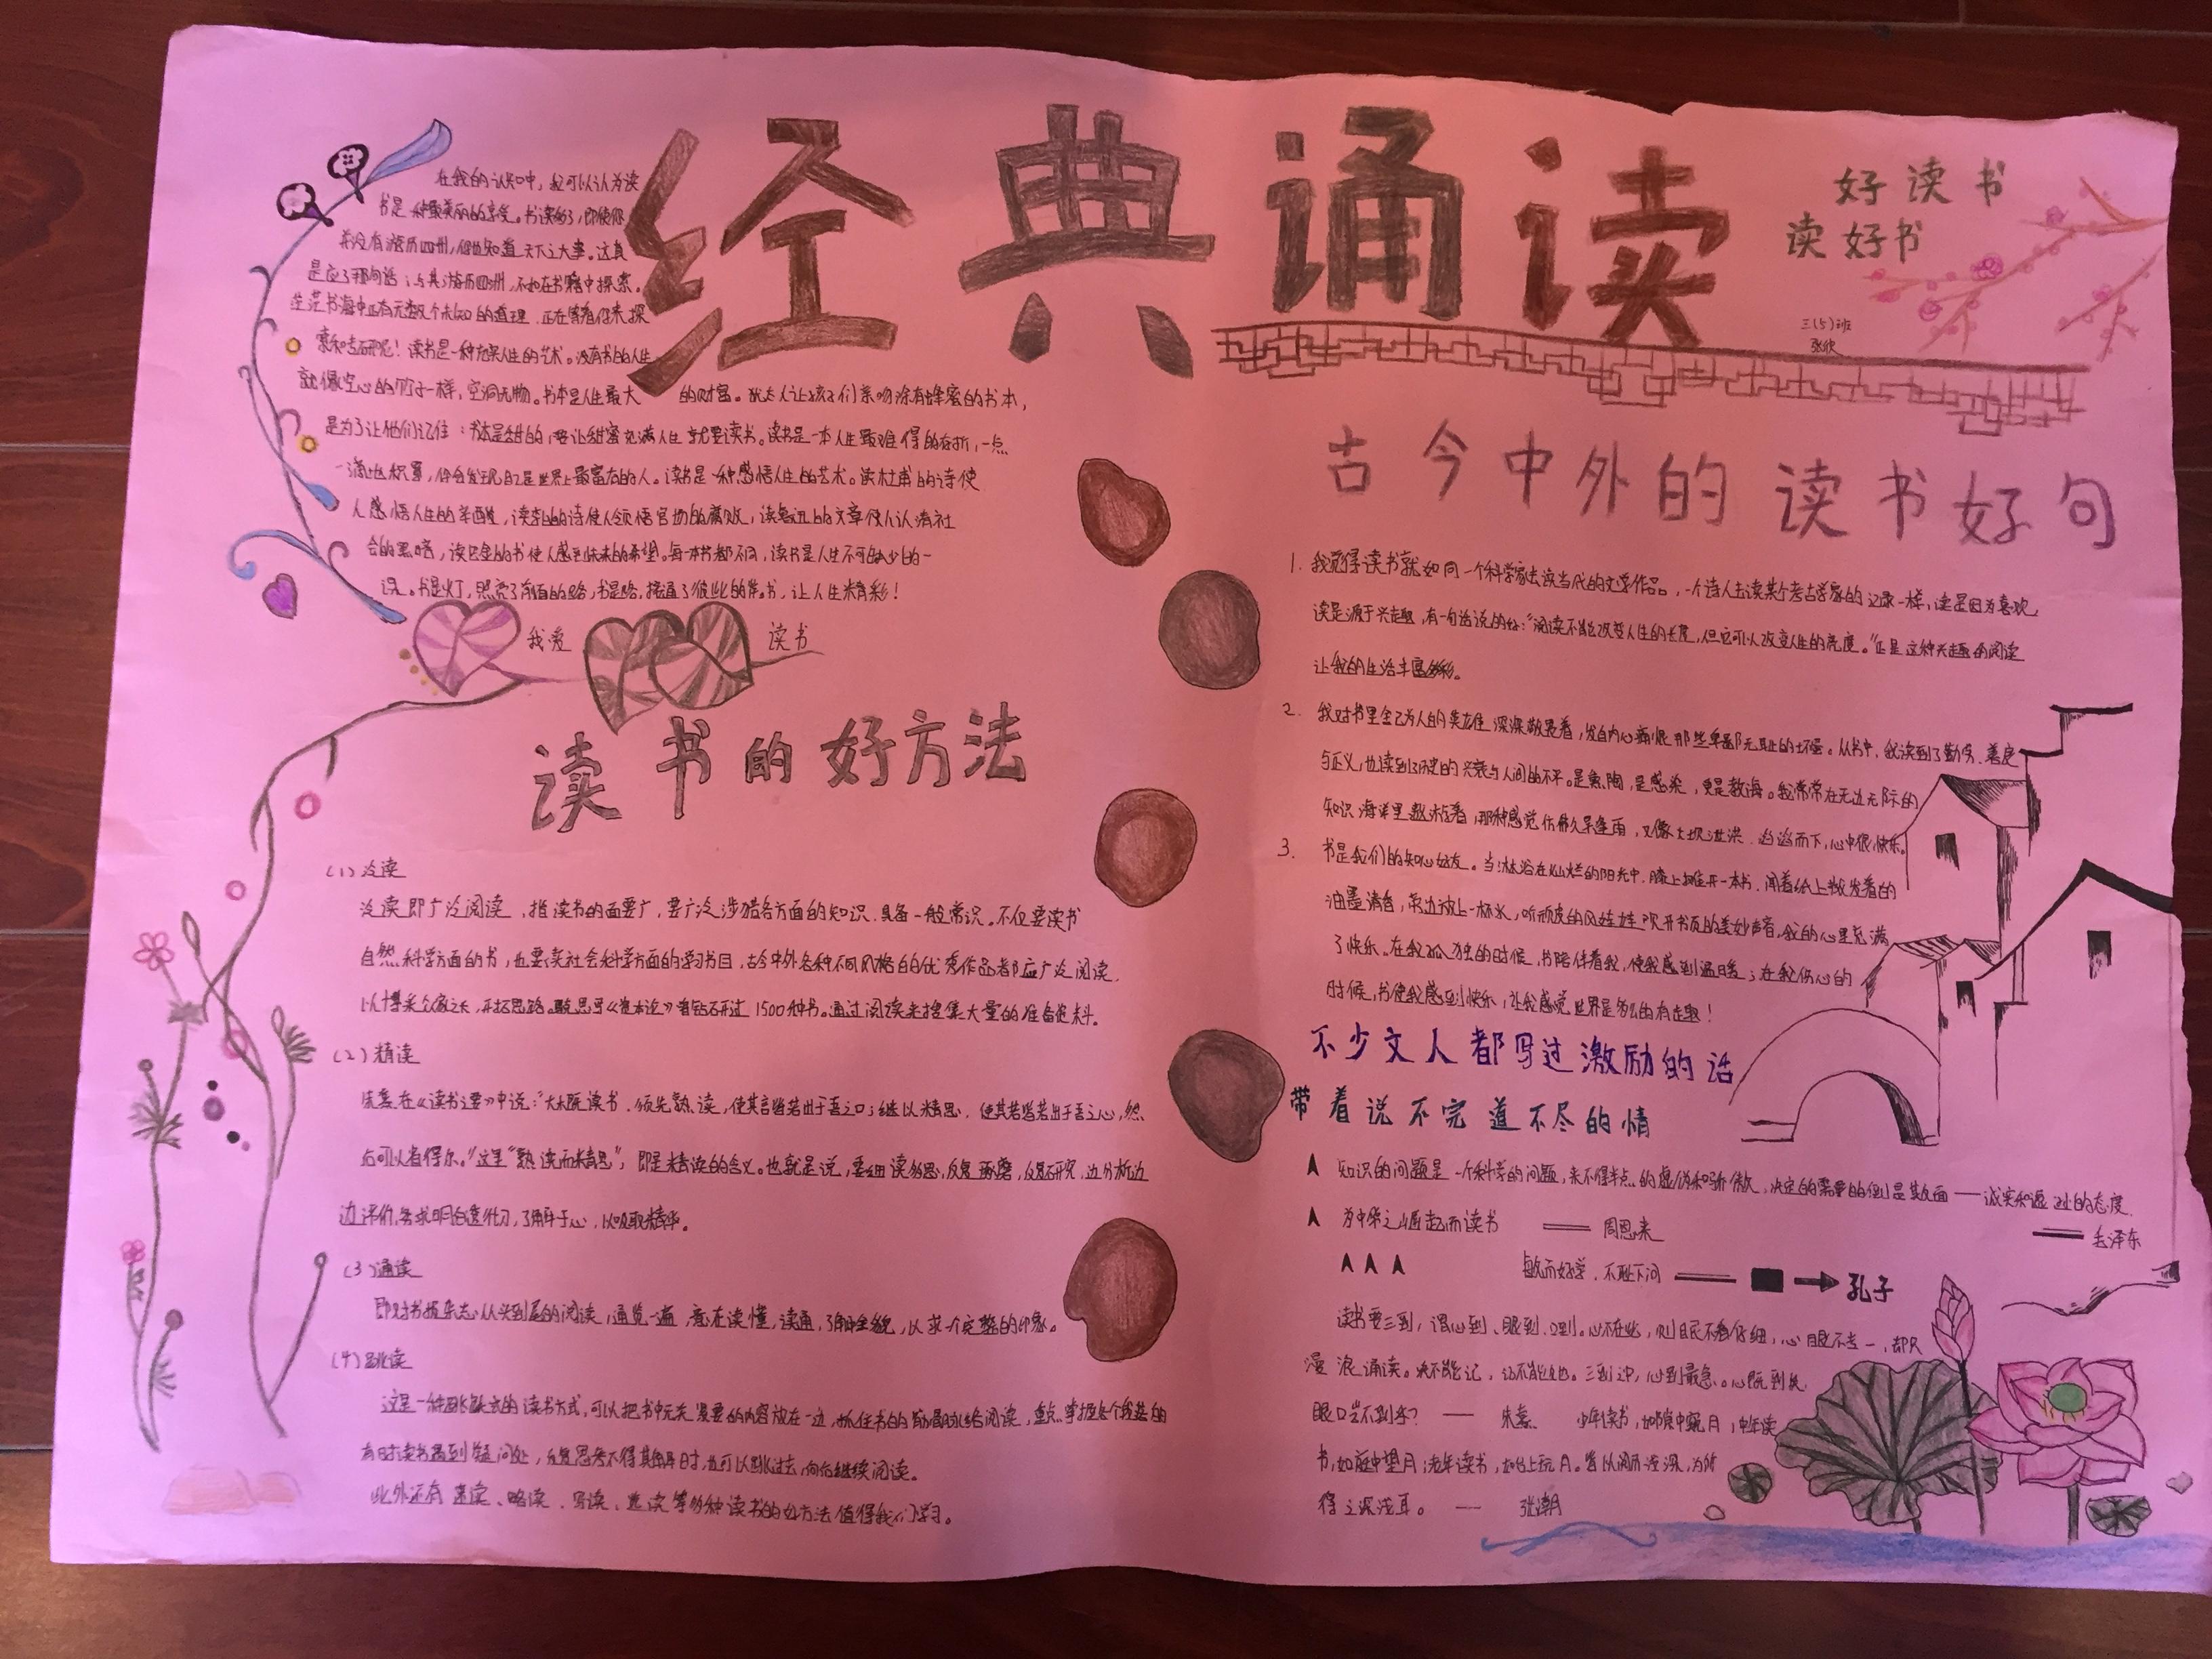 经典诵读
好读书
读好书
三(5)班
在我的认知中，我可以认为读
书是一种最美丽的享受。书读多了，即使你
并没有游历四州，但也知道天下之大事。这真
是应了那句话：与其游历四州，不如在书籍中探索。
茫茫书海中还有无数个未知的道理，正在等着你来探
索和钻研呢！读书是一种充实人生的艺术。没有书的人生
就像空心的竹子一样，空洞无物。书本是人生最大的财富。犹太人让孩子们亲吻涂有蜂蜜的书本，
是为了让他们记住：书本是甜的，要让甜蜜充满人生就要读书。读书是一本人生最难得的存折，一点
一滴地积累，你会发现自己是世界上最富有的人。读书是一种感悟人生的艺术。读杜甫的诗使
人感悟人生的辛酸，读李白的诗使人领悟官场的腐败，读鲁迅的文章使人认清社
会的黑暗，读巴金的书使人感到未来的希望。每一本书都不同，读书是人生不可缺少的一
课。书是灯，照亮了前面的路，书是路，接通了彼此的岸。书，让人生精彩！
我爱
读书
读书的好方法
(1)泛读
泛读即广泛阅读，指读书的面要广，要广泛涉猎各方面的知识，具备一般常识。不仅要读书
自然科学方面的书，也要读社会科学方面的学习书目，古今中外各种不同风格的优秀作品都应广泛阅读，
以博采众家之长，开拓思路。马克思写《资本论》曾钻研过1500种书。通过阅读来搜集大量的准备资料。
(2)精读
朱熹在《读书之要》中说："大抵读书，须先熟读，使其言皆若出于吾之口；继以精思，使其若皆若出于吾之心，然
后可以有得尔。"这里"熟读而精思"，即是精读的含义。也就是说，要细读多思，反复琢磨，反复研究，边分析边
边评价，务求明白透彻，了解于心，以吸取精华。
(3)通读
即对书报杂志从头到尾的阅读，通览一遍，意在读懂，读通，了解全貌，以求一个完整的印象。
(4)跳读
这是一种跳跃式的读书方式，可以把书中无关紧要的内容放在一边，抓住书的筋骨脉络阅读，重点掌握各个段落的
有时读书遇到疑问处，反复思考不得其解时，也可以跳过去，向后继续阅读。
此外还有速读、略读、写读、选读等多种读书的好方法值得我们学习。
古今中外的读书好句
1. 我觉得读书就如同一个科学家去读当代的文学作品，一个诗人去读某个考古学家的记录一样，读是因为喜欢，
读是源于兴趣，有一句话说的好："阅读不能改变人生的长度，但它可以改变人生的亮度。"正是这种兴趣的阅读
让我的生活丰富多彩。
2. 我对书里舍己为人的英雄深深敬畏着，发自内心痛恨那些卑鄙无耻的坏蛋。从书中，我读到了勤劳、善良
与正义，也读到了历史的兴衰与人间的不平。是熏陶，是感染，更是教诲。我常常在无边无际的
知识海洋里遨游着，那种感觉仿佛久旱逢雨，又像大坝泄洪，滔滔而下，心中很快乐。
3. 书是我们的知心好友。当沐浴在灿烂的阳光中，膝上摊开一本书，闻着纸上散发着的
油墨清香，旁边放上一杯水，听顽皮的风娃娃吹开书页的美妙声音，我的心里充满
了快乐。在我孤独的时候，书陪伴着我，使我感到温暖；在我伤心的
时候，书使我感到快乐，让我感觉世界是多么的有趣！
不少文人都写过激励的话
带着说不完道不尽的情
知识的问题是一个科学的问题，来不得半点的虚伪和骄傲，决定的需要的倒是其反面——诚实和谦逊的态度。
——毛泽东
为中华之崛起而读书 ——周恩来
敏而好学，不耻下问 ——孔子
读书要三到，谓心到、眼到、口到。心不在此，则眼不看仔细，心眼不专一，却只
漫浪诵读。决不能记，记不能久也。三到之中，心到最急。心既到矣，
眼口岂不到乎？ —— 朱熹 少年读书，如隙中窥月，中年读
书，如庭中望月；老年读书，如台上玩月。皆以阅历之浅深，为所
得之深浅耳。 —— 张潮